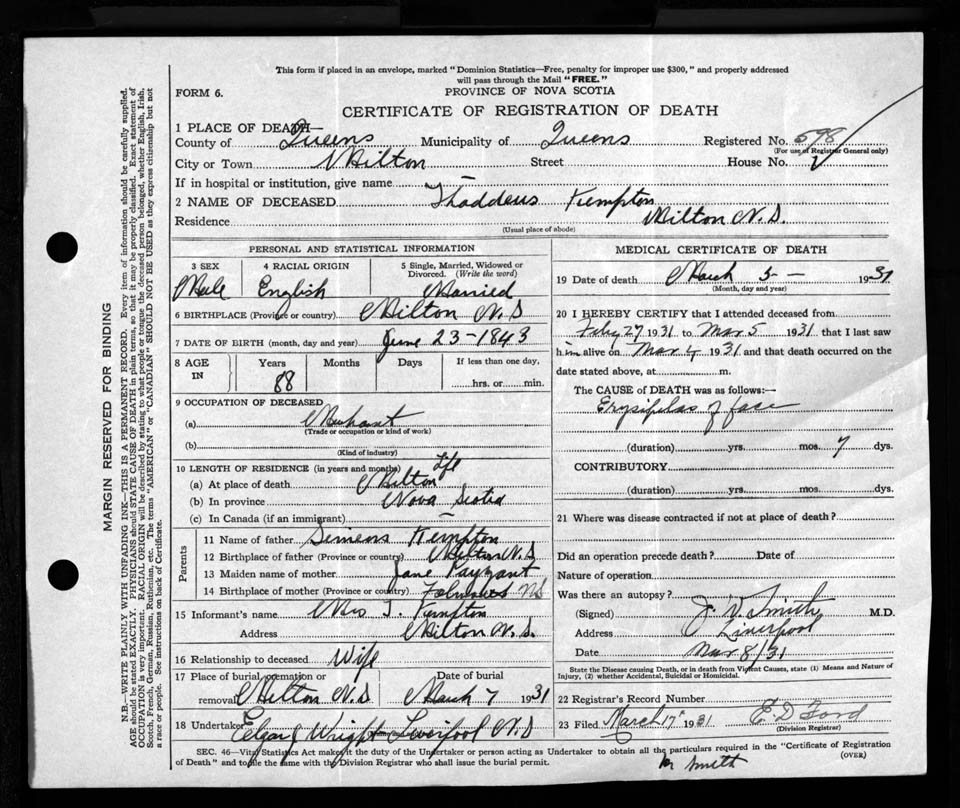 This form if placed in an envelope, marked "Dominion Statistics—Free, penalty for improper use $300," and properly addressed
will pass through the Mail "FREE."
FORM 6.
PROVINCE OF NOVA SCOTIA
CERTIFICATE OF REGISTRATION OF DEATH
1 PLACE OF DEATH—
County of Queens Municipality of Queens Registered No. 598
(For use of Registrar General only)
City or Town Milton Street House No.
If in hospital or institution, give name —
2 NAME OF DECEASED Thaddeus Kempton
Residence Milton N.S.
(Usual place of abode)
PERSONAL AND STATISTICAL INFORMATION
3 SEX
Male
4 RACIAL ORIGIN
English
5 Single, Married, Widowed or
Divorced. (Write the word)
Married
6 BIRTHPLACE (Province or country) Milton N.S
7 DATE OF BIRTH (month, day and year) June 23-1843
8 AGE
IN
Years
88
Months
Days
If less than one day,
hrs. or min.
9 OCCUPATION OF DECEASED
(a) Merchant
(Trade or occupation or kind of work)
(b)
(Kind of industry)
10 LENGTH OF RESIDENCE (in years and months) Life
(a) At place of death Milton
(b) In province Nova Scotia
(c) In Canada (if an immigrant) —
Parents
11 Name of father Simeons Kempton
12 Birthplace of father (Province or country) Milton N.S
13 Maiden name of mother Jane Payzant
14 Birthplace of mother (Province or country) NS
15 Informant's name Mrs T. Kempton
Address Milton N.S.
16 Relationship to deceased Wife
17 Place of burial, cremation or
removal Milton N.S
Date of burial
March 7 1931
18 Undertaker Edgar J Wright Liverpool N.S
MEDICAL CERTIFICATE OF DEATH
19 Date of death March 5 — 1931
(Month, day and year)
20 I HEREBY CERTIFY that I attended deceased from
Feby 27 1931 to Mar 5 1931 that I last saw
him alive on Mar 4 1931 and that death occurred on the
date stated above, at m.
The CAUSE of DEATH was as follows:—
Erysipelas of face
(duration) yrs. mos. 7 dys.
CONTRIBUTORY.
(duration) yrs. mos. dys.
21 Where was disease contracted if not at place of death?
Did an operation precede death? Date of
Nature of operation
Was there an autopsy?
(Signed) J. W. Smith M.D.
Address Liverpool
Date Mar 8/31
State the Disease causing Death, or in death from Violent Causes, state (1) Means and Nature of
Injury, (2) whether Accidental, Suicidal or Homicidal.
22 Registrar's Record Number
23 Filed March 17 1931 E. D Ford
(Division Registrar)
SEC. 46—Vital Statistics Act makes it the duty of the Undertaker or person acting as Undertaker to obtain all the particulars required in the "Certificate of Registration
of Death" and to file the same with the Division Registrar who shall issue the burial permit.
(OVER)
Dr Smith
MARGIN RESERVED FOR BINDING
N.B.—WRITE PLAINLY WITH UNFADING INK—THIS IS A PERMANENT RECORD. Every item of information should be carefully supplied.
AGE should be stated EXACTLY. PHYSICIANS should STATE CAUSE OF DEATH in plain terms, so that it may be properly classified. Exact statement of
OCCUPATION is very important. RACIAL ORIGIN will be described by stating to what people or tongue the deceased person belonged, whether English, Irish,
Scotch, French, German, Russian, Ruthenian, etc. The terms "AMERICAN" or "CANADIAN" SHOULD NOT BE USED as they express citizenship but not
a race or people. See instructions on back of Certificate.